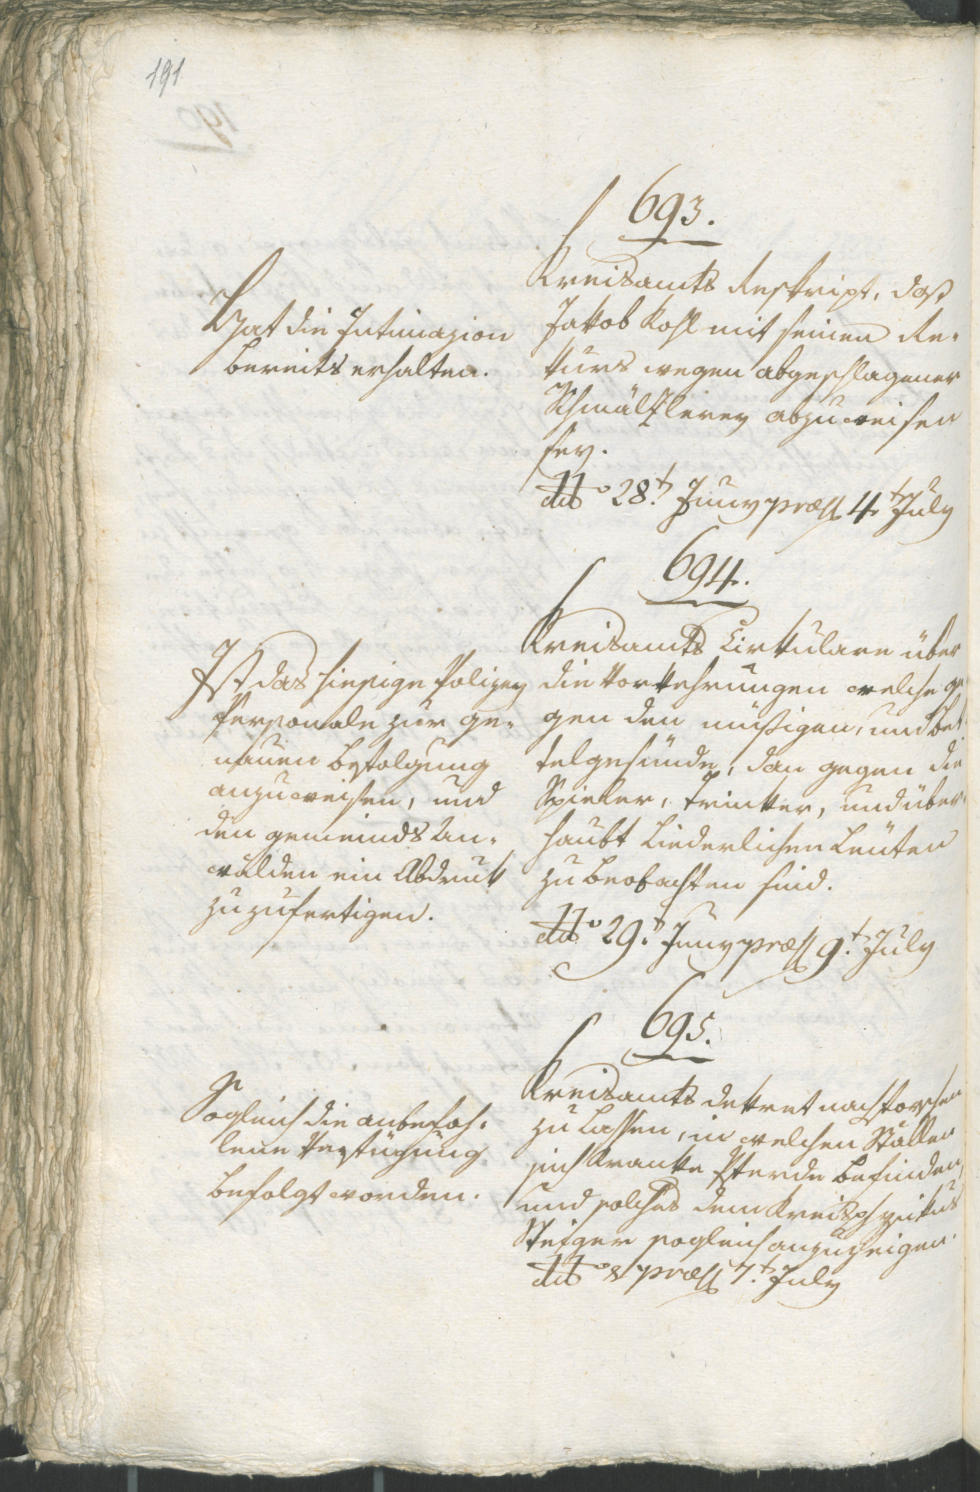 191
693.
Kreisamts Reskript, daß
Jakob Kohl mit seinen Re-
kurs wegen abgeschlagener
Schmälzlerey abzuweisen
sey.
ddo 28t Juny præs 4t July
Hat die Intimazion
bereits erhalten.
694.
Kreisamts Cirkulare über
die Vorkehrungen welche ge
gen den müßigen, und Bet
telgesinde, dan gegen die
Spieler, Trinker, und über
haubt Liederlichen Leüten
zu beobachten sind.
ddo 29t Juny præs 9t July
Ist das hiesige Polizey
Personale zur ge-
nauen Befolgung
anzuweisen, und
den gemeinds An-
wälden ein Abdruk
zuzufertigen.
695.
Kreisamts dekret nachforschen
zu Lassen, in welchen Ställen
sich Kranke Pferde befinden
und solches dem Kreisphysikus
sogleich anzuzeigen.
ddo & præs 7t July
Sogleich die anbefoh-
lene Verfügung
befolgt worden.